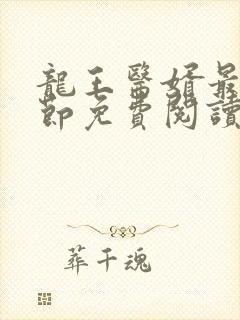 龍王醫婿最
節免費閱讀
葬千魂